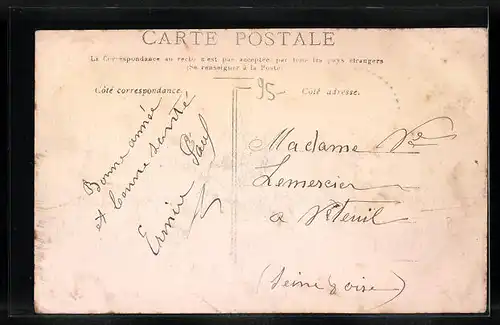 CARTE POSTALE
La Correspondance au recto n'est pas acceptée par tous les pays étrangers
(Se renseigner à la Poste)
Côté correspondance.
Côté adresse.
95-
Bonne année
et bonne santé
Paul
Madame Vve
Lemercier
a Vteuil
(Seine & oise)